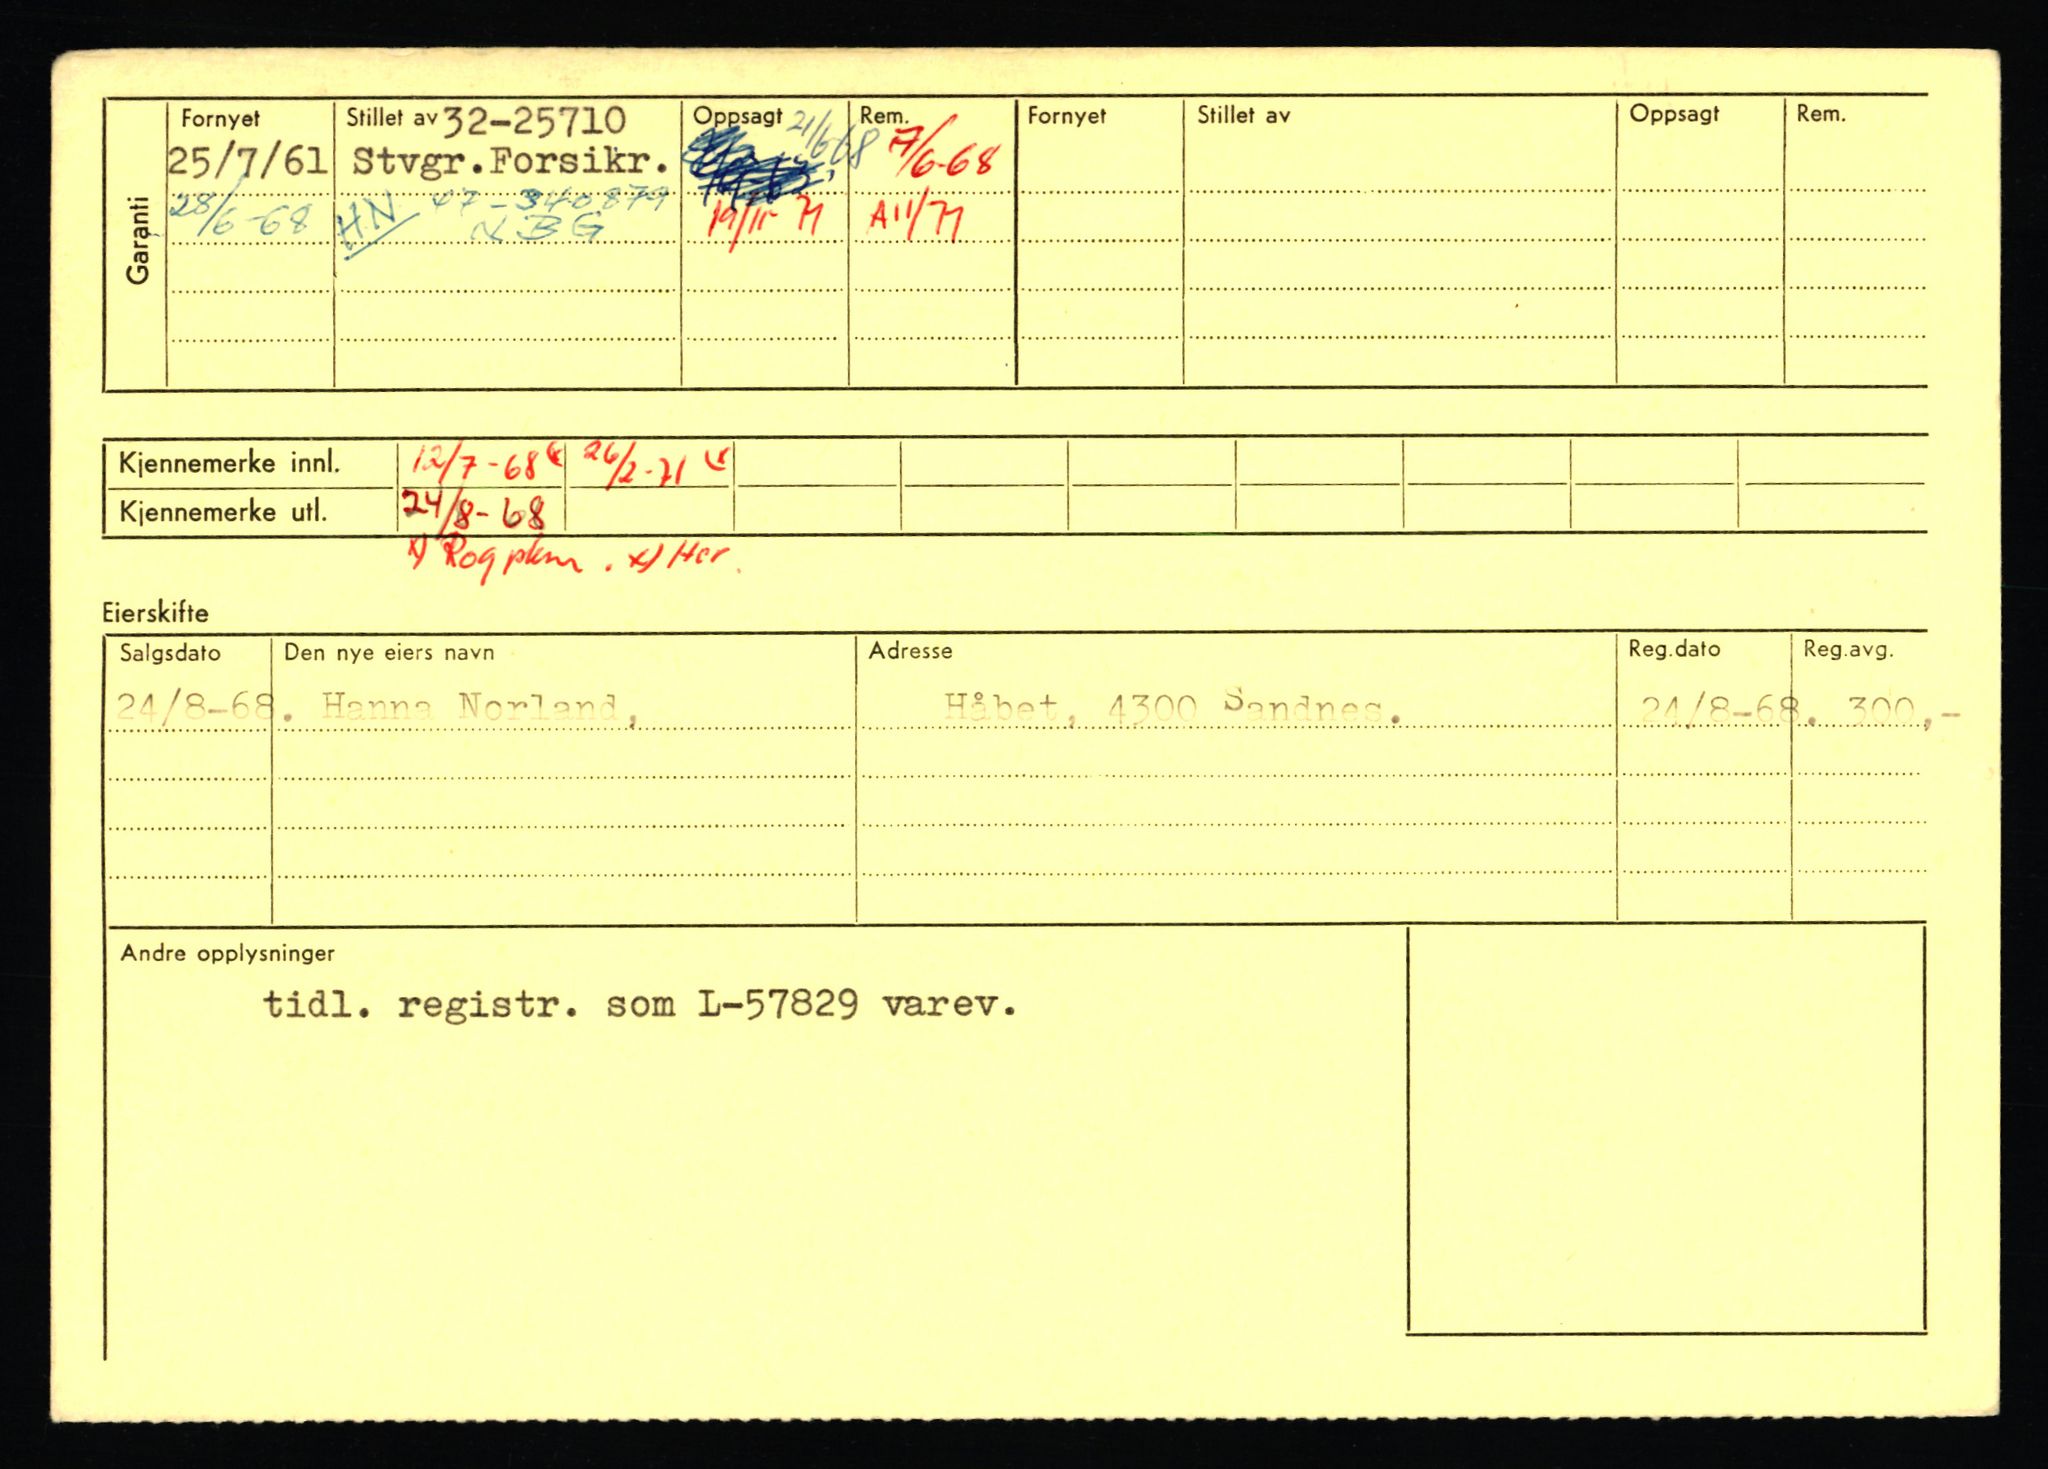 Garanti
Fornyet Stillet av 32-25710 Oppsagt 21/6 68 Rem. Fornyet Stillet av Oppsagt Rem.
25/7/61 Stvgr.Forsikr. 7/6-68
28/6-68 HN 07-340879 19/11 71 A11/71
NBG
Kjennemerke innl. 12/7-68 x 26/2-71 x
Kjennemerke utl. 24/8-68
x) Rog x) Her.
Eierskifte
Salgsdato Den nye eiers navn Adresse Reg.dato Reg.avg.
24/8-68. Hanna Norland, Håbet, 4300 Sandnes. 24/8-68. 300,-
Andre opplysninger
tidl. registr. som L-57829 varev.